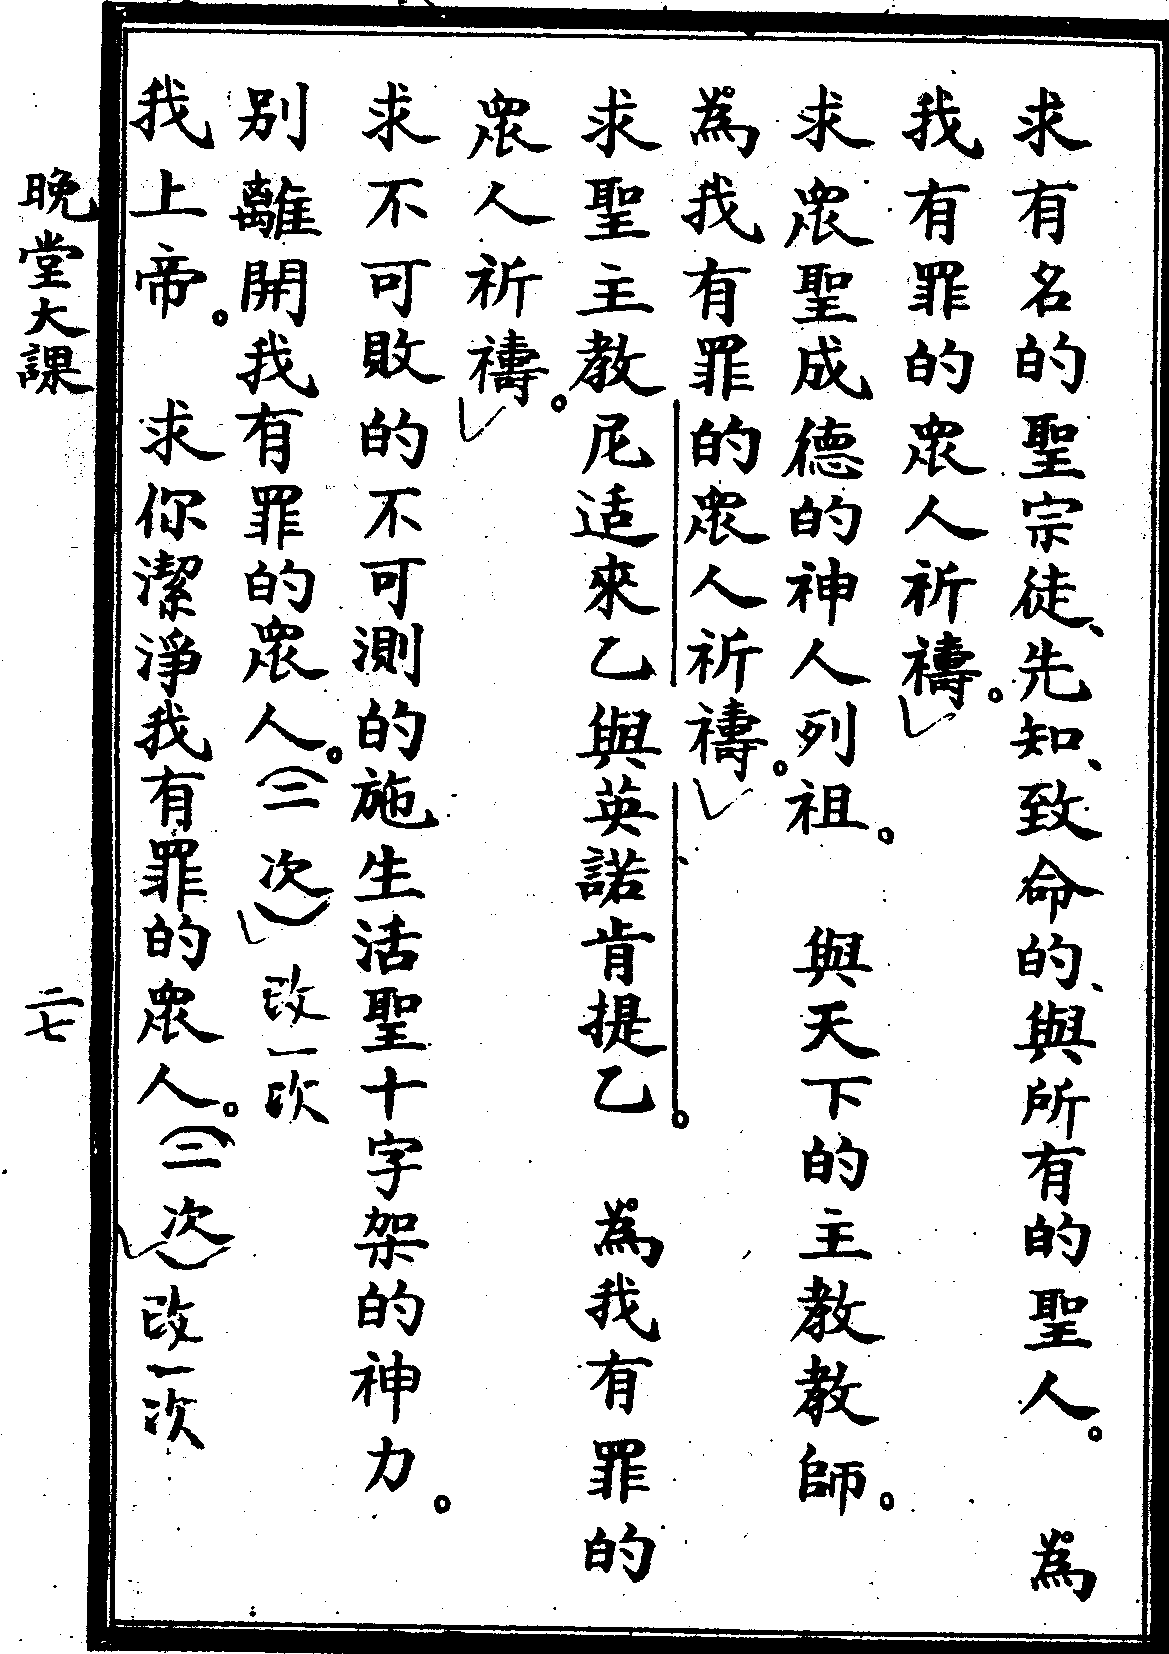 求有名的聖宗徒、先知、致命的、與所有的聖人。　為
我有罪的眾人祈禱。
求眾聖成德的神人列祖。　與天下的主教教師。
為我有罪的眾人祈禱。
求聖主教尼适來乙與英諾肯提乙。　為我有罪的
眾人祈禱。
求不可敗的不可測的施生活聖十字架的神力。
别離開我有罪的眾人。（二次）改一次
我上帝。　求你潔淨我有罪的眾人。（二次）改一次
晚堂大課
二七